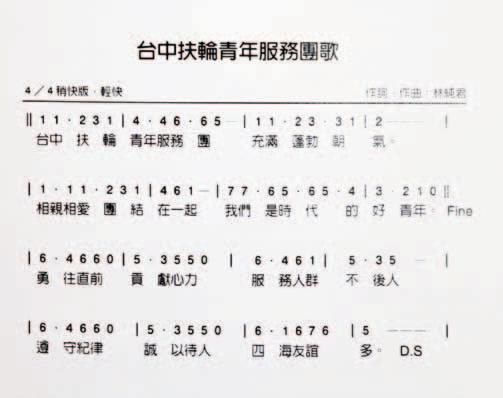 台中扶輪青年服務團歌
4／4稍快版·輕快 作詞·作曲：林純君
‖ 1 1 · 2 3 1 | 4 · 4 6 · 6 5 — | 1 1 · 2 3 · 3 1 | 2 — — |
台中 扶 輪 青年服務 團 充滿 蓬勃 朝 氣。
| 1 · 1 1 · 2 3 1 | 4 6 1 — | 7 7 · 6 5 · 6 5 · 4 | 3 · 2 1 0 ‖
相親相愛 團 結 在一起 我們 是時 代 的 好 青年。 Fine
| 6 · 4 6 6 0 | 5 · 3 5 5 0 | 6 · 4 6 1 | 5 · 3 5 — |
勇 往直前 貢 獻心力 服 務人群 不 後人
| 6 · 4 6 6 0 | 5 · 3 5 5 0 | 6 · 1 6 7 6 | 5 — — — |
遵 守紀律 誠 以待人 四 海友誼 多。 D.S